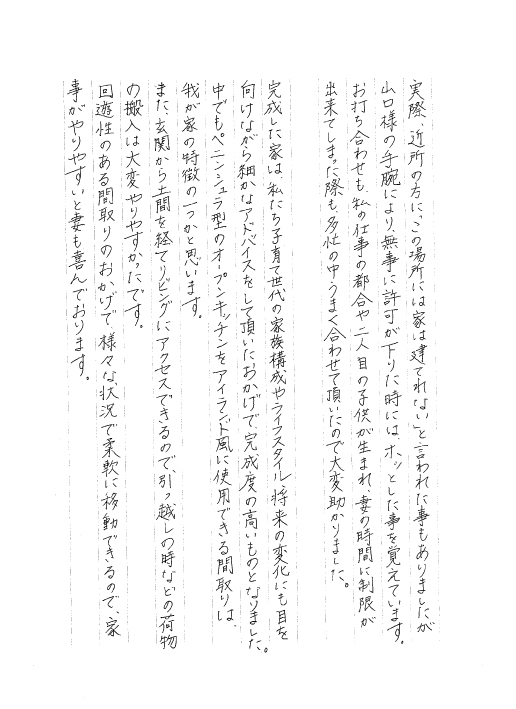 実際、近所の方に、「この場所には家は建てれない」と言われた事もありましたが
山口様の手腕により、無事に許可が下りた時には、ホッとした事を覚えています。
お打ち合わせも、私の仕事の都合や二人目の子供が生まれ、妻の時間に制限が
出来てしまった際も、多忙の中うまく合わせて頂いたので大変助かりました。
完成した家は、私たち子育て世代の家族構成やライフスタイル、将来の変化にも目を
向けながら細かなアドバイスをして頂いたおかげで、完成度の高いものとなりました。
中でもペニンシュラ型のオープンキッチンをアイランド風に使用できる間取りは、
我が家の特徴の一つかと思います。
また、玄関から土間を経てリビングにアクセスできるので、引っ越しの時などの荷物
の搬入は大変やりやすかったです。
回遊性のある間取りのおかげで、様々な状況で柔軟に移動できるので、家
事がやりやすいと妻も喜んでおります。